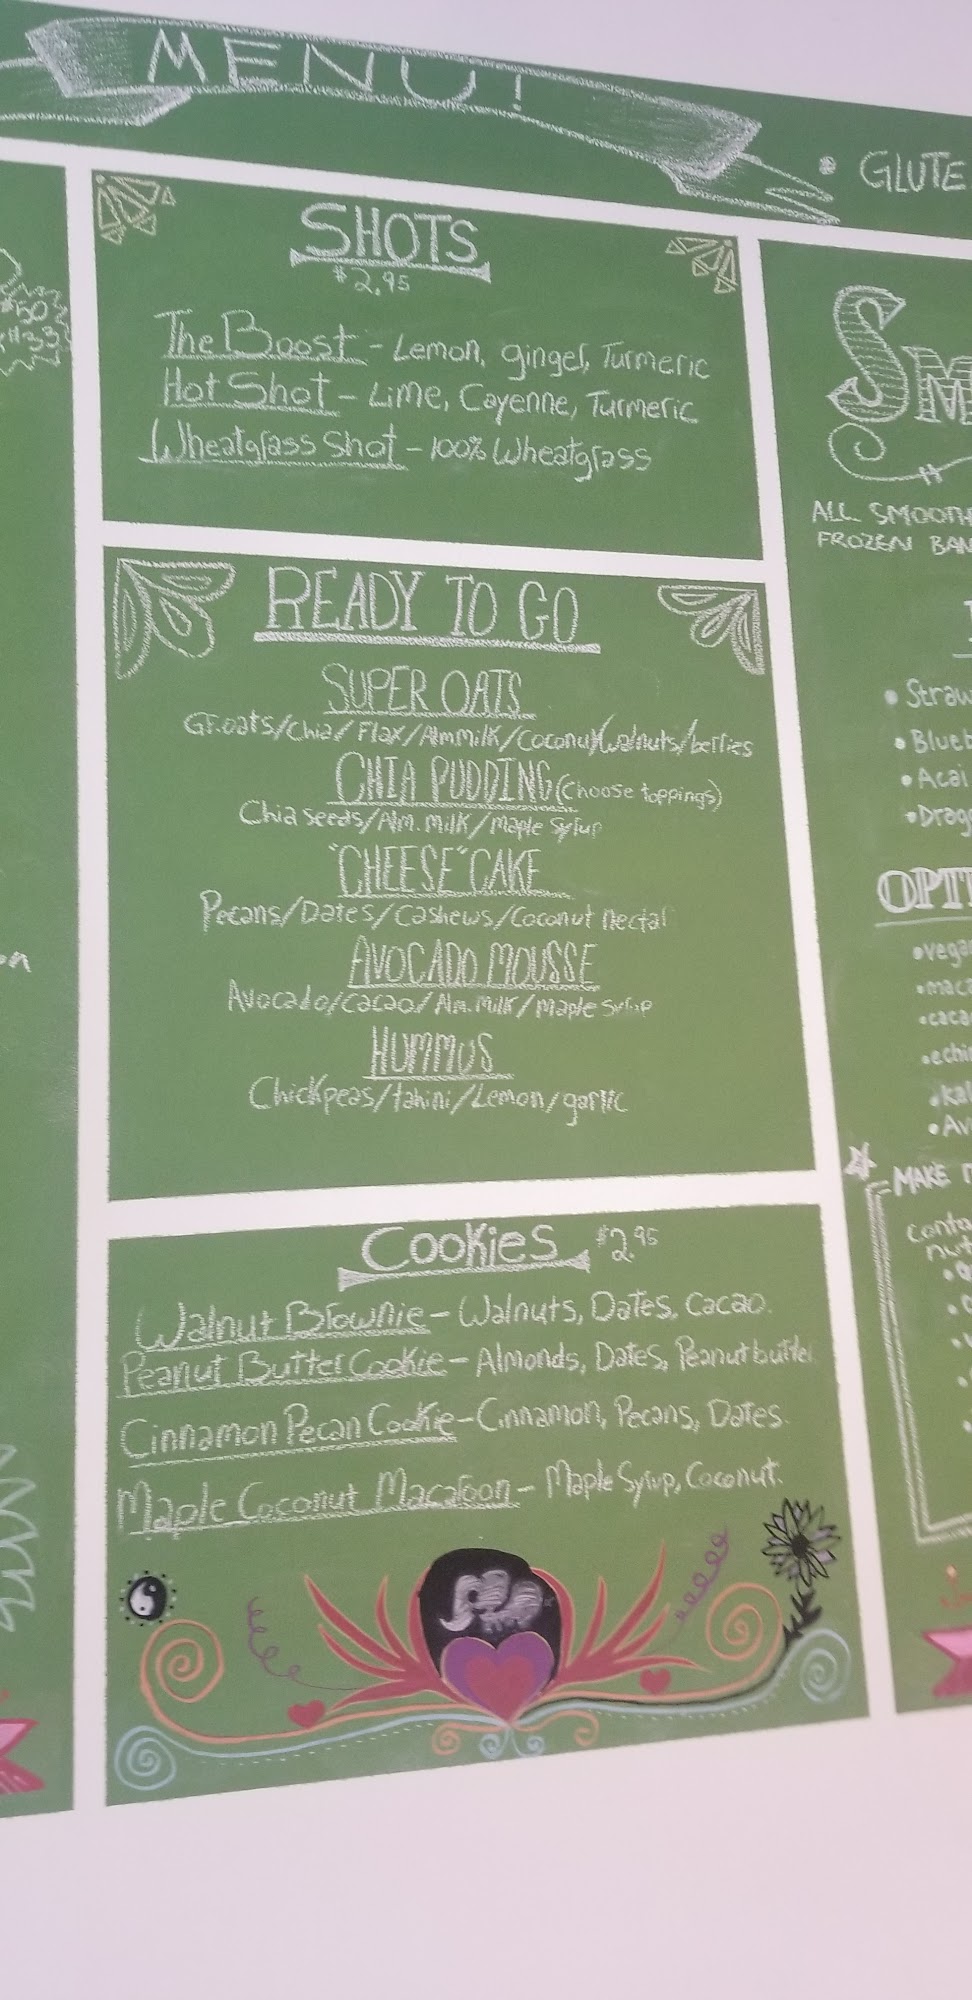 MENU!
GLUTE
$50
$33
SHOTS
$2.95
The Boost - Lemon, ginger, Turmeric
Hot Shot - Lime, Cayenne, Turmeric
Wheatgrass Shot - 100% Wheatgrass
READY TO GO
SUPER OATS
GF.oats/Chia/Flax/Alm Milk/Coconut/walnuts/berries
CHIA PUDDING (Choose toppings)
Chia seeds/Alm. Milk/Maple Syrup
"CHEESE" CAKE
Pecans/Dates/Cashews/Coconut nectar
AVOCADO MOUSSE
Avocado/Cacao/Alm. Milk/Maple Syrup
HUMMUS
Chickpeas/tahini/Lemon/garlic
Cookies $2.95
Walnut Brownie - Walnuts, Dates, Cacao.
Peanut Butter Cookie - Almonds, Dates, Peanut butter
Cinnamon Pecan Cookie - Cinnamon, Pecans, Dates.
Maple Coconut Macaroon - Maple Syrup, Coconut.
SM
ALL SMOOTH
FROZEN BAN
• Straw
• Blueb
• Acai
• Drag
OPTI
• vega
• maca
• caca
• echi
• kal
• Av
MAKE
conta
nut